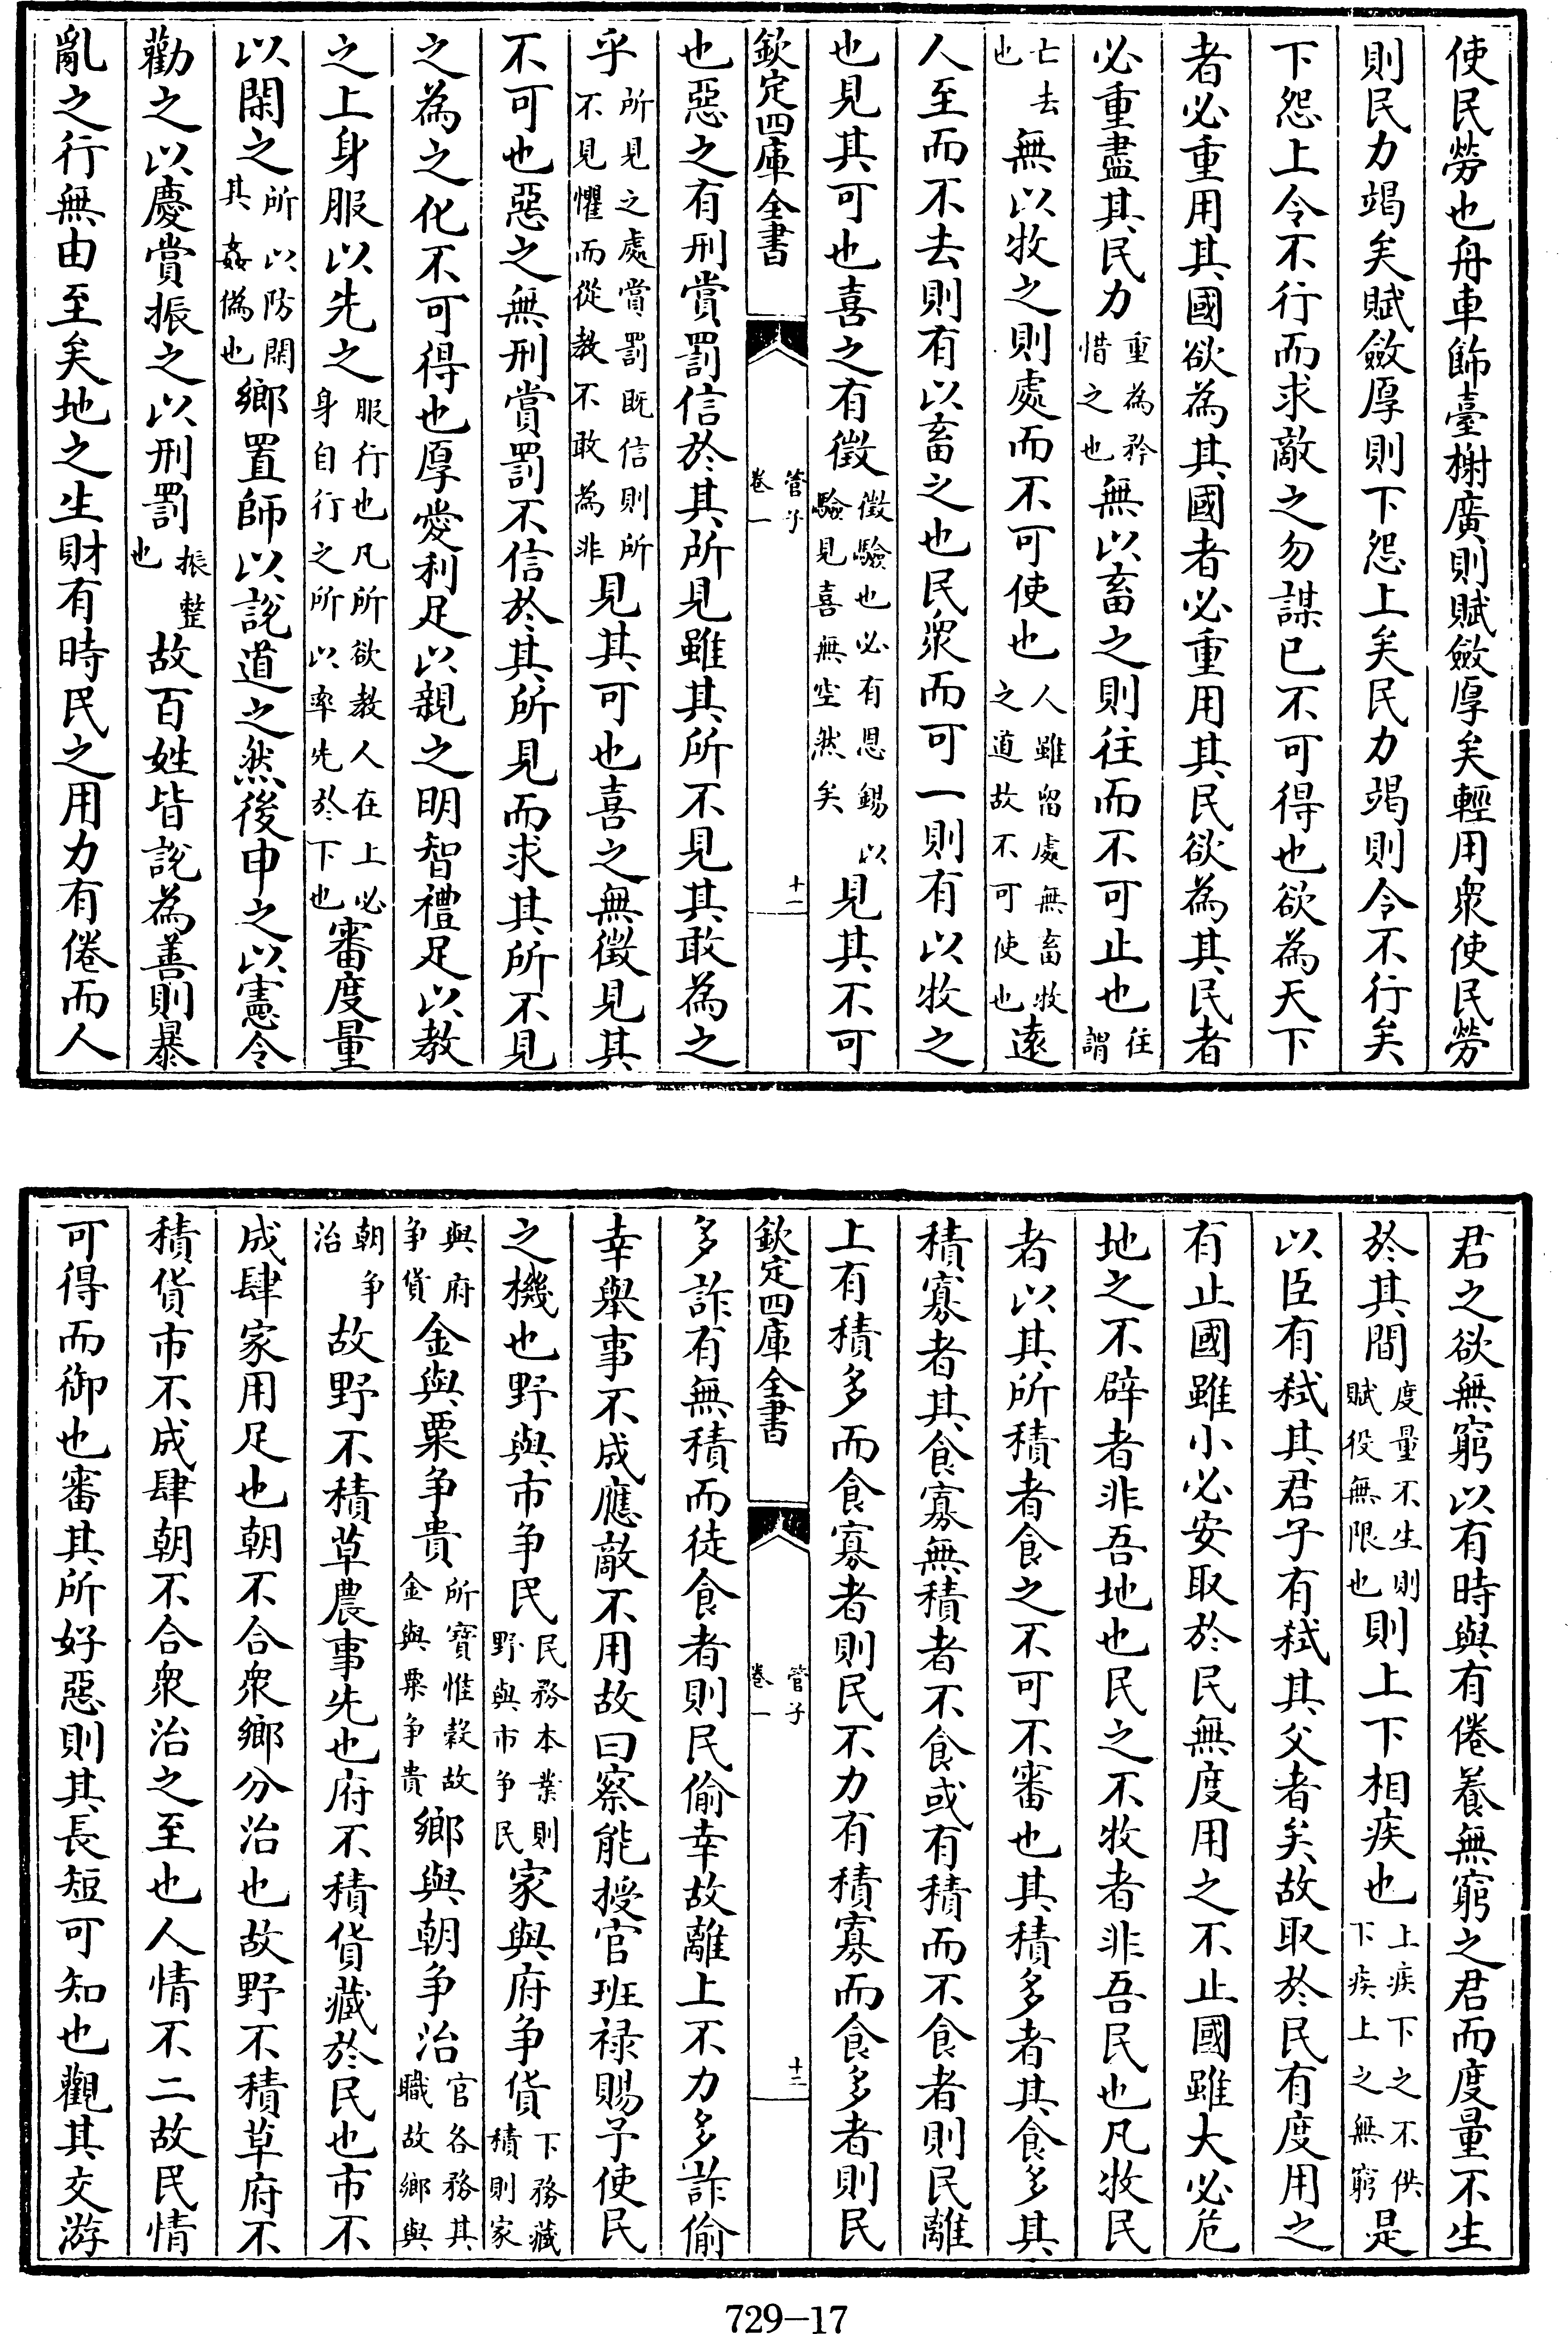 使民勞也舟車飾臺榭廣則賦斂厚矣輕用衆使民勞
則民力竭矣賦斂厚則下怨上矣民力竭則令不行矣
下怨上令不行而求敵之勿謀已不可得也欲為天下
者必重用其國欲為其國者必重用其民欲為其民者
必重盡其民力重為矜惜之也無以畜之則往而不可止也往謂
亡去也無以牧之則處而不可使也人雖留處無畜牧之道故不可使也遠
人至而不去則有以畜之也民衆而可一則有以牧之
也見其可也喜之有徵徵驗也必有恩錫以驗見喜無空然矣見其不可
欽定四庫全書 管子 卷一 十一
也惡之有刑賞罰信於其所見雖其所不見其敢為之
乎所見之處賞罰既信則所不見懼而從教不敢為非見其可也喜之無徵見其
不可也惡之無刑賞罰不信於其所見而求其所不見
之為之化不可得也厚愛利足以親之明智禮足以教
之上身服以先之服行也凡所欲教人在上必身自行之所以率先於下也審度量
以閑之所以防閑其姦偽也鄉置師以說道之然後申之以憲令
勸之以慶賞振之以刑罰振整也故百姓皆說為善則暴
亂之行無由至矣地之生財有時民之用力有倦而人
君之欲無窮以有時與有倦養無窮之君而度量不生
於其間度量不生則賦役無限也則上下相疾也上疾下之不供下疾上之無窮是
以臣有弒其君子有弒其父者矣故取於民有度用之
有止國雖小必安取於民無度用之不止國雖大必危
地之不辟者非吾地也民之不牧者非吾民也凡牧民
者以其所積者食之不可不審也其積多者其食多其
積寡者其食寡無積者不食或有積而不食者則民離
上有積多而食寡者則民不力有積寡而食多者則民
欽定四庫全書 管子 卷一 十二
多詐有無積而徒食者則民偷幸故離上不力多詐偷
幸舉事不成應敵不用故曰察能授官班祿賜予使民
之機也野與市争民民務本業則野與市争民家與府争貨下務藏積則家
與府争貨金與粟争貴所寶惟穀故金與粟争貴鄉與朝争治官各務其職故鄉與
朝争治故野不積草農事先也府不積貨藏於民也市不
成肆家用足也朝不合衆鄉分治也故野不積草府不
積貨市不成肆朝不合衆治之至也人情不二故民情
可得而御也審其所好惡則其長短可知也觀其交游
729-17